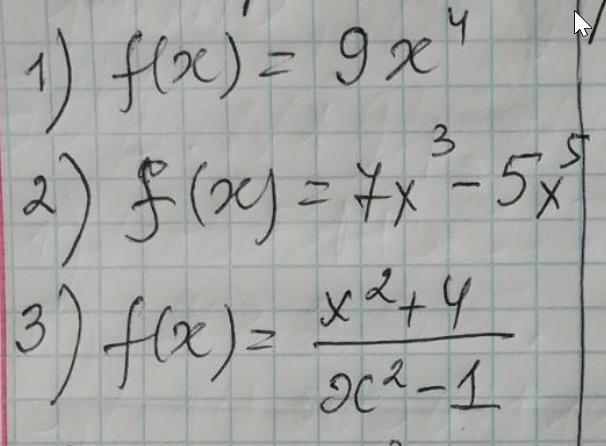 1) f(x) = 9x⁴
2) f(x) = 7x³ - 5x⁵
3) f(x) = (x² + 4) / (x² - 1)